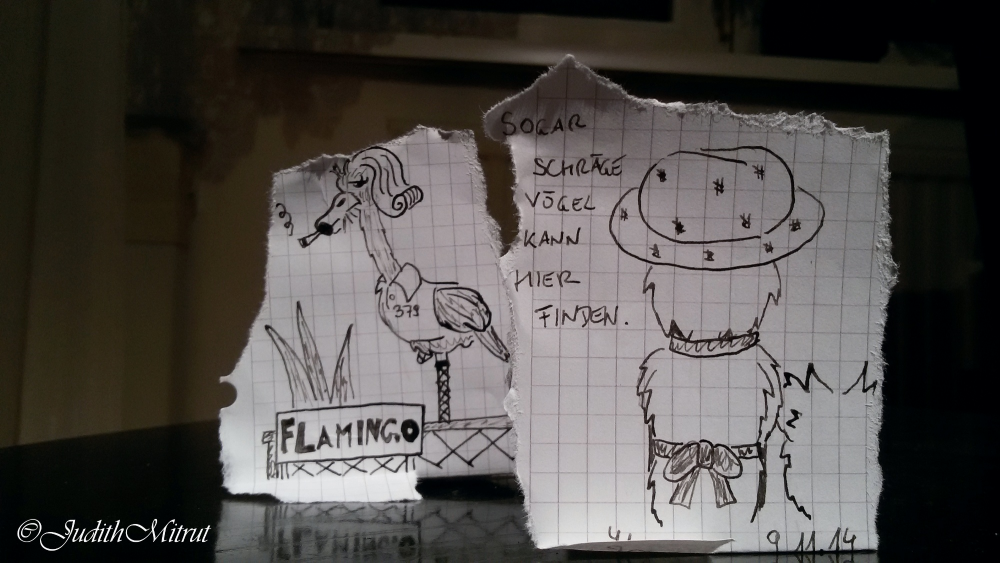 SOGAR
SCHRÄGE
VÖGEL
KANN
HIER
FINDEN.
379
FLAMINGO
9.11.14
©JudithMitrut